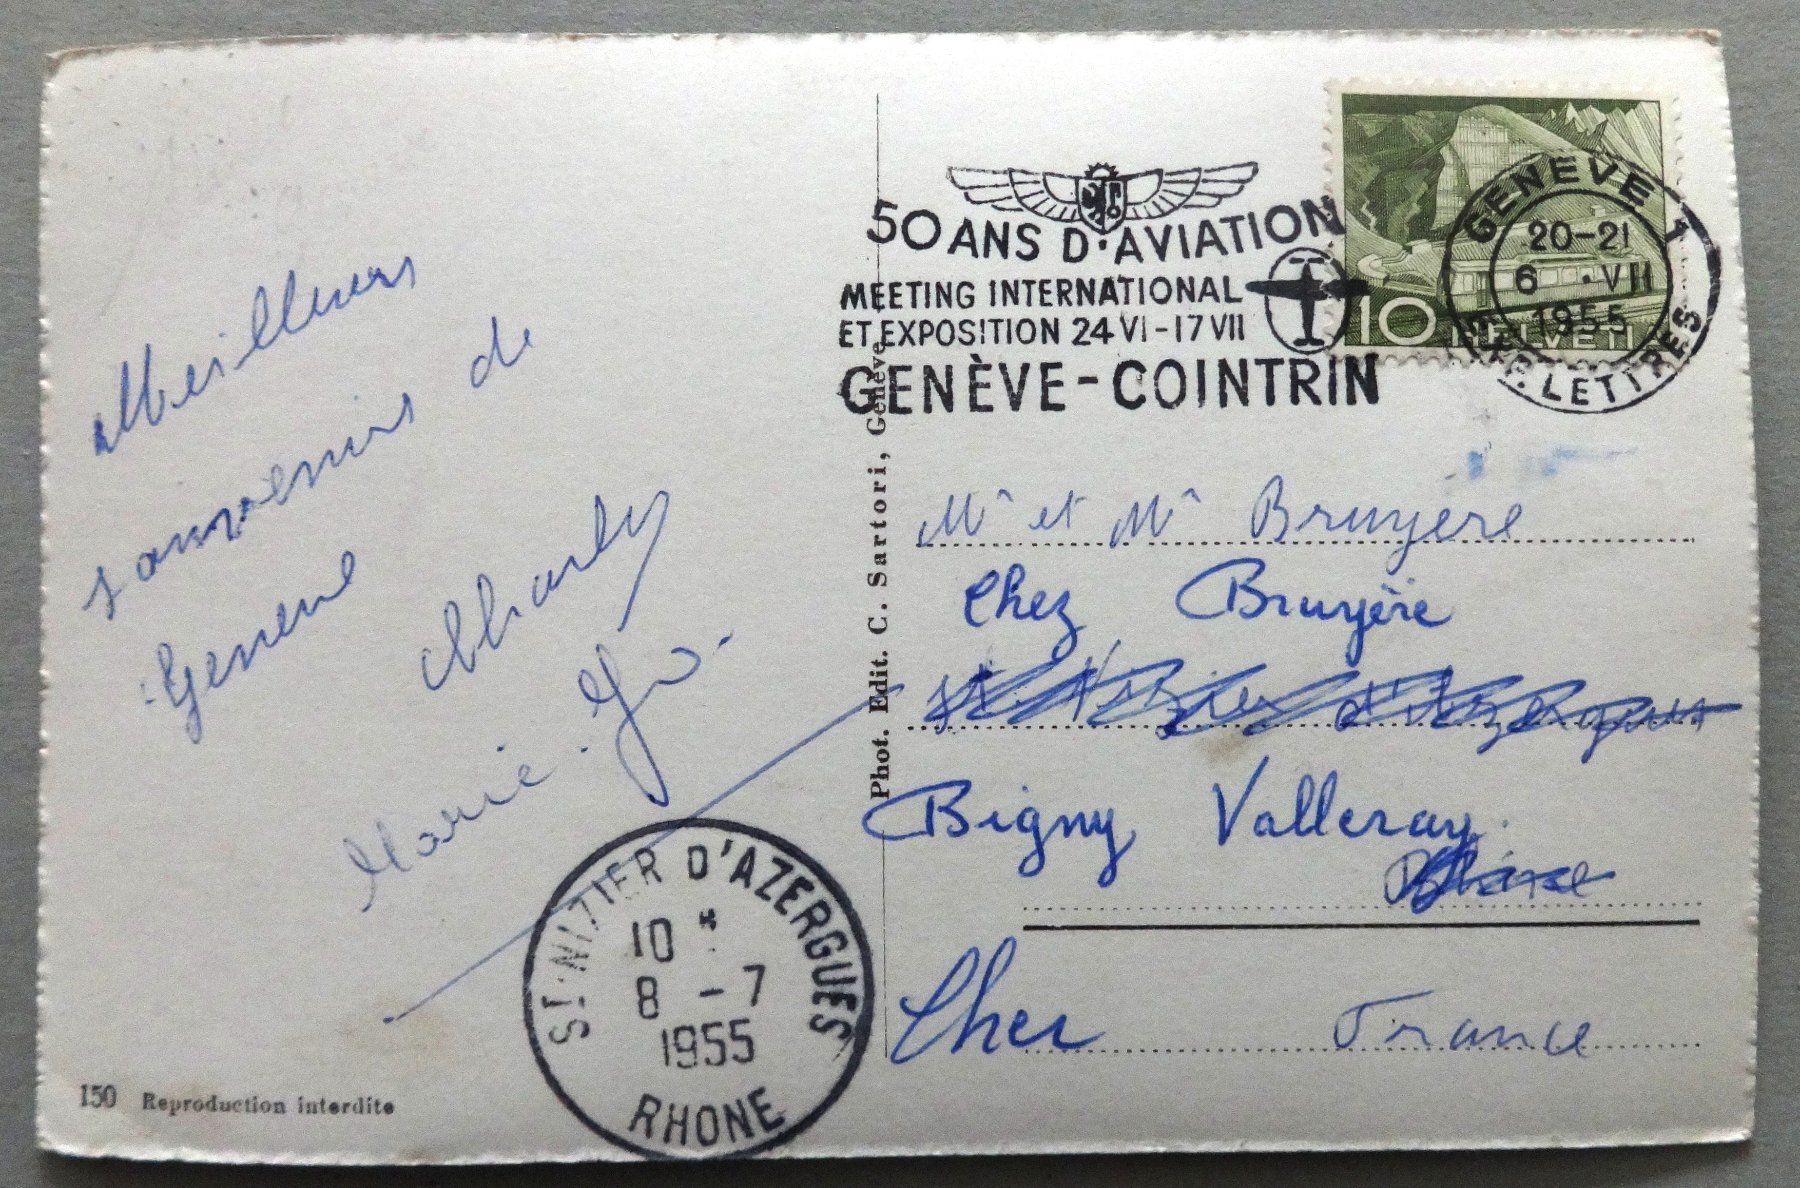 Meilleurs
souvenirs de
Geneve
Charly
Marie-Jo.
150 Reproduction interdite
ST-NIZIER D'AZERGUES
10 *
8 -7
1955
RHONE
Phot. Edit. C. Sartori, Genève
50 ANS D'AVIATION
MEETING INTERNATIONAL
ET EXPOSITION 24 VI-17 VII
GENÈVE-COINTRIN
10 HELVETIA
GENEVE 1
20-21
6.VII
1955
EXP. LETTRES
Mr et Me Bruyere
Chez Bruyère
St Nizier d'Azergues
Bigny Valleray.
Rhône
Cher France